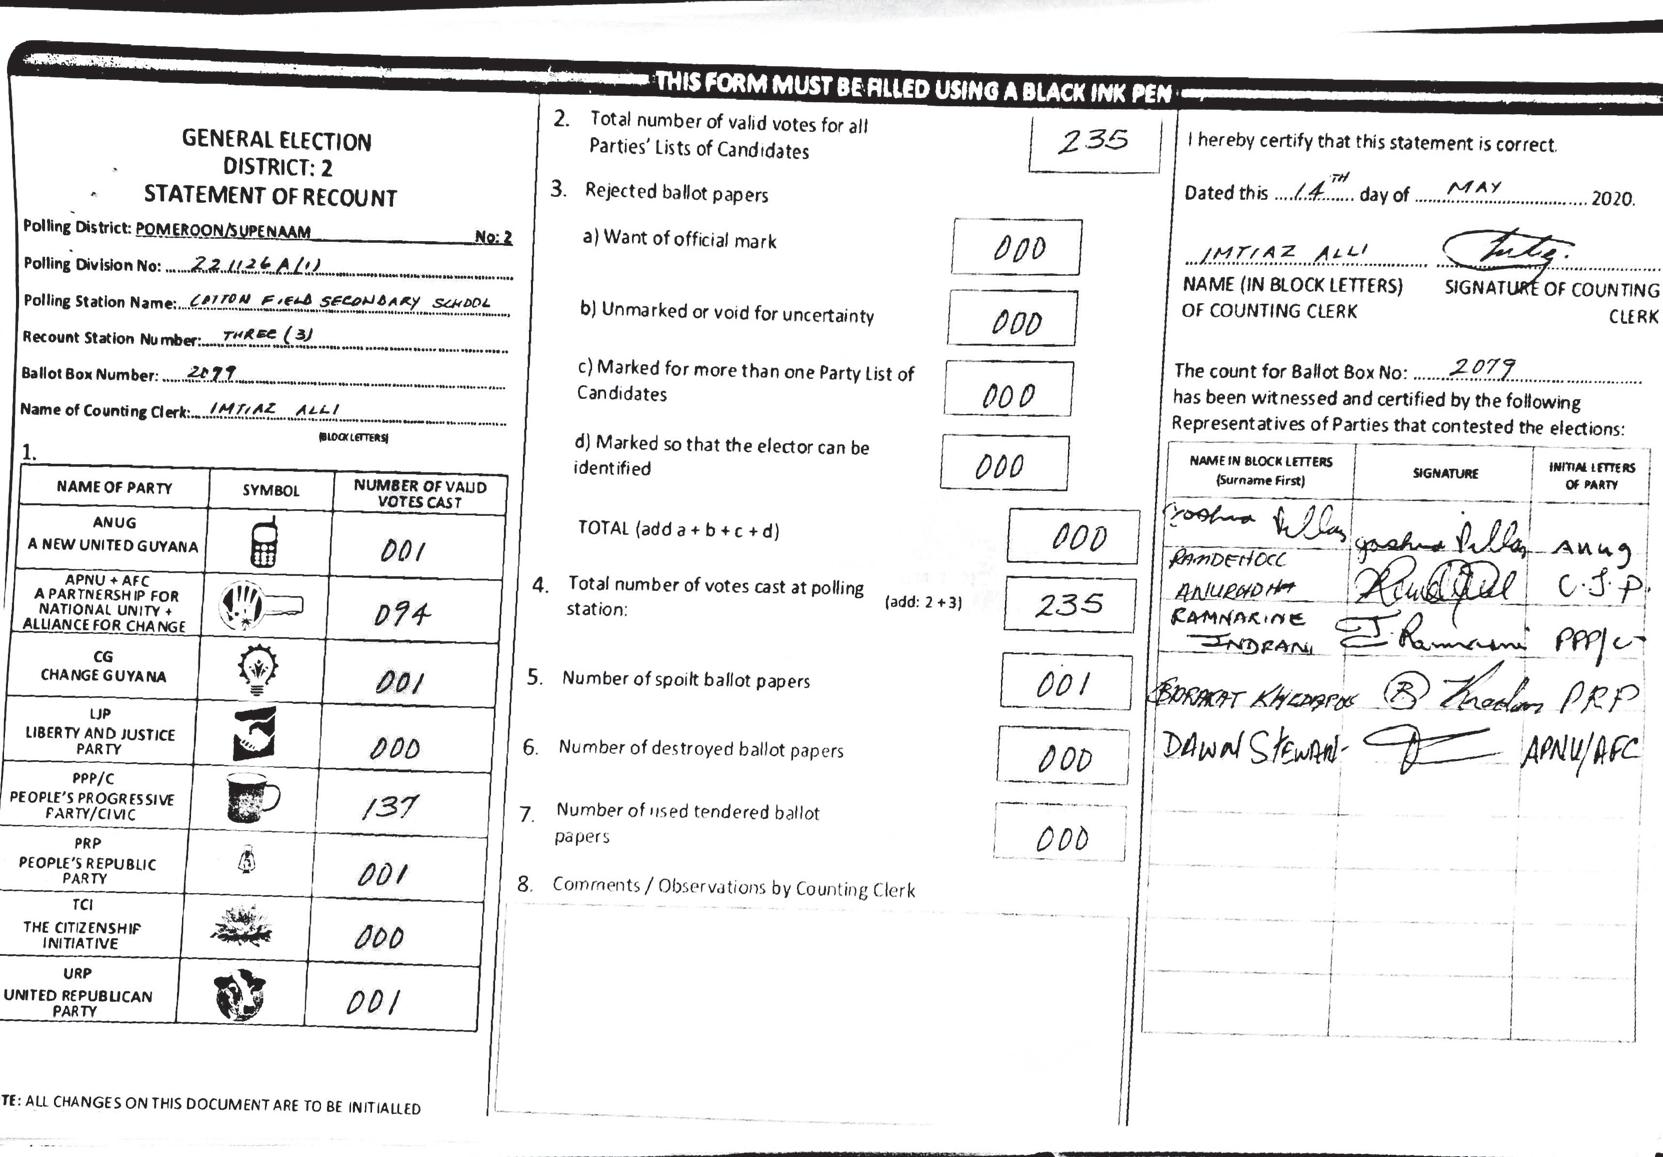 THIS FORM MUST BE FILLED USING A BLACK INK PEN
GENERAL ELECTION
DISTRICT: 2
STATEMENT OF RECOUNT
Polling District: POMEROON/SUPENAAM No: 2
Polling Division No: 221126A(1)
Polling Station Name: COTTON FIELD SECONDARY SCHOOL
Recount Station Number: THREE (3)
Ballot Box Number: 2079
Name of Counting Clerk: IMTIAZ ALLI
(BLOCK LETTERS)
1.
NAME OF PARTY SYMBOL NUMBER OF VALID
VOTES CAST
ANUG
A NEW UNITED GUYANA 001
APNU + AFC
A PARTNERSHIP FOR
NATIONAL UNITY +
ALLIANCE FOR CHANGE 094
CG
CHANGE GUYANA 001
LJP
LIBERTY AND JUSTICE
PARTY 000
PPP/C
PEOPLE'S PROGRESSIVE
PARTY/CIVIC 137
PRP
PEOPLE'S REPUBLIC
PARTY 001
TCI
THE CITIZENSHIP
INITIATIVE 000
URP
UNITED REPUBLICAN
PARTY 001
TE: ALL CHANGES ON THIS DOCUMENT ARE TO BE INITIALLED
2. Total number of valid votes for all
Parties' Lists of Candidates 235
3. Rejected ballot papers
a) Want of official mark 000
b) Unmarked or void for uncertainty 000
c) Marked for more than one Party List of
Candidates 000
d) Marked so that the elector can be
identified 000
TOTAL (add a + b + c + d) 000
4. Total number of votes cast at polling
station: (add: 2 + 3) 235
5. Number of spoilt ballot papers 001
6. Number of destroyed ballot papers 000
7. Number of used tendered ballot
papers 000
8. Comments / Observations by Counting Clerk
I hereby certify that this statement is correct.
Dated this 14TH day of MAY 2020.
IMTIAZ ALLI
NAME (IN BLOCK LETTERS) SIGNATURE OF COUNTING
OF COUNTING CLERK CLERK
The count for Ballot Box No: 2079
has been witnessed and certified by the following
Representatives of Parties that contested the elections:
NAME IN BLOCK LETTERS SIGNATURE INITIAL LETTERS
(Surname First) OF PARTY
Joshua Joshua ANUG
ANURADHA C.J.P.
RAMNARINE
INDRANI PPP/C
PRP
DAWN STEWART APNU/AFC